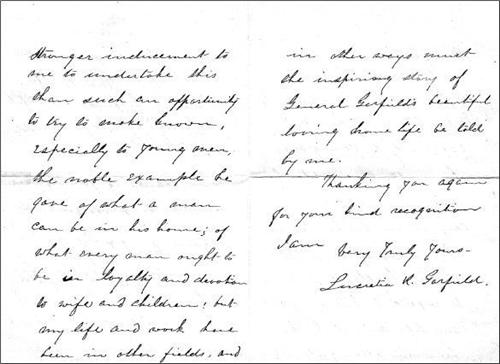 stronger inducement to
me to undertake this
than such an opportunity
to try to make known,
especially to young men,
the noble example he
gave of what a man
can be in his home; of
what every man ought to
be in loyalty and devotion
to wife and children: but
my life and work have
been in other fields, and
in other ways must
the inspiring story of
General Garfield's beautiful
loving home life be told
by me.
Thanking you again
for your kind recognition
I am
Very Truly Yours-
Lucretia R. Garfield.